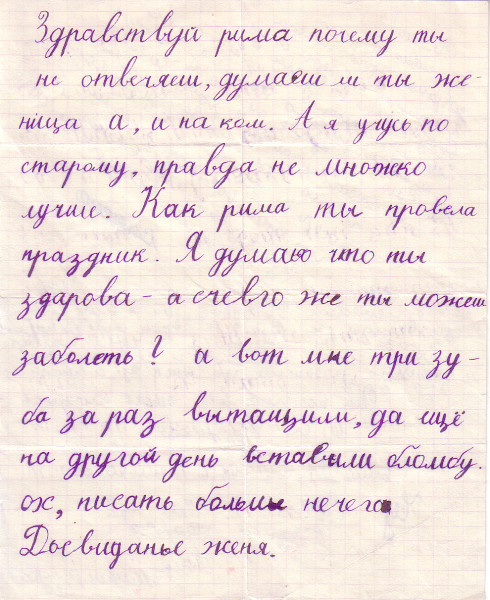 Здравствуй рима почему ты
не отвечяеш, думаеш ли ты же-
ница а, и на ком. А я учусь по
старому, правда не множко
лучше. Как рима ты провела
праздник. Я думаю что ты
здарова - а счевго же ты можеш
заболеть? а вот мне три зу-
ба за раз вытащили, да ещё
на другой день вставили бломбу.
ох, писать больше нечего
Досвиданье женя.